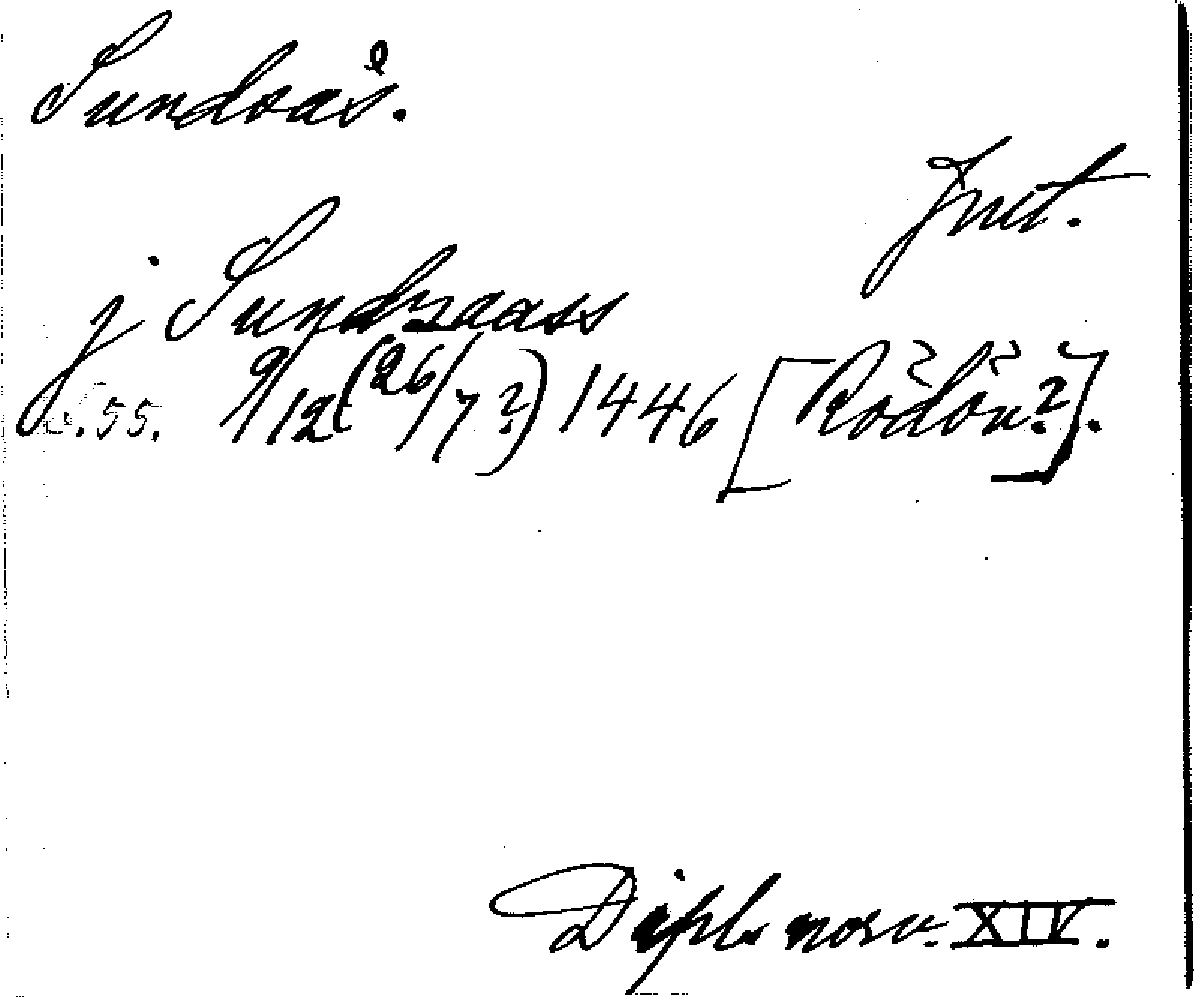 Sundsås.
Jmt.
j Sundzaass
S.55. 9/12 (26/7?) 1446 [Rödön?].
Dipl. norv. XIV.